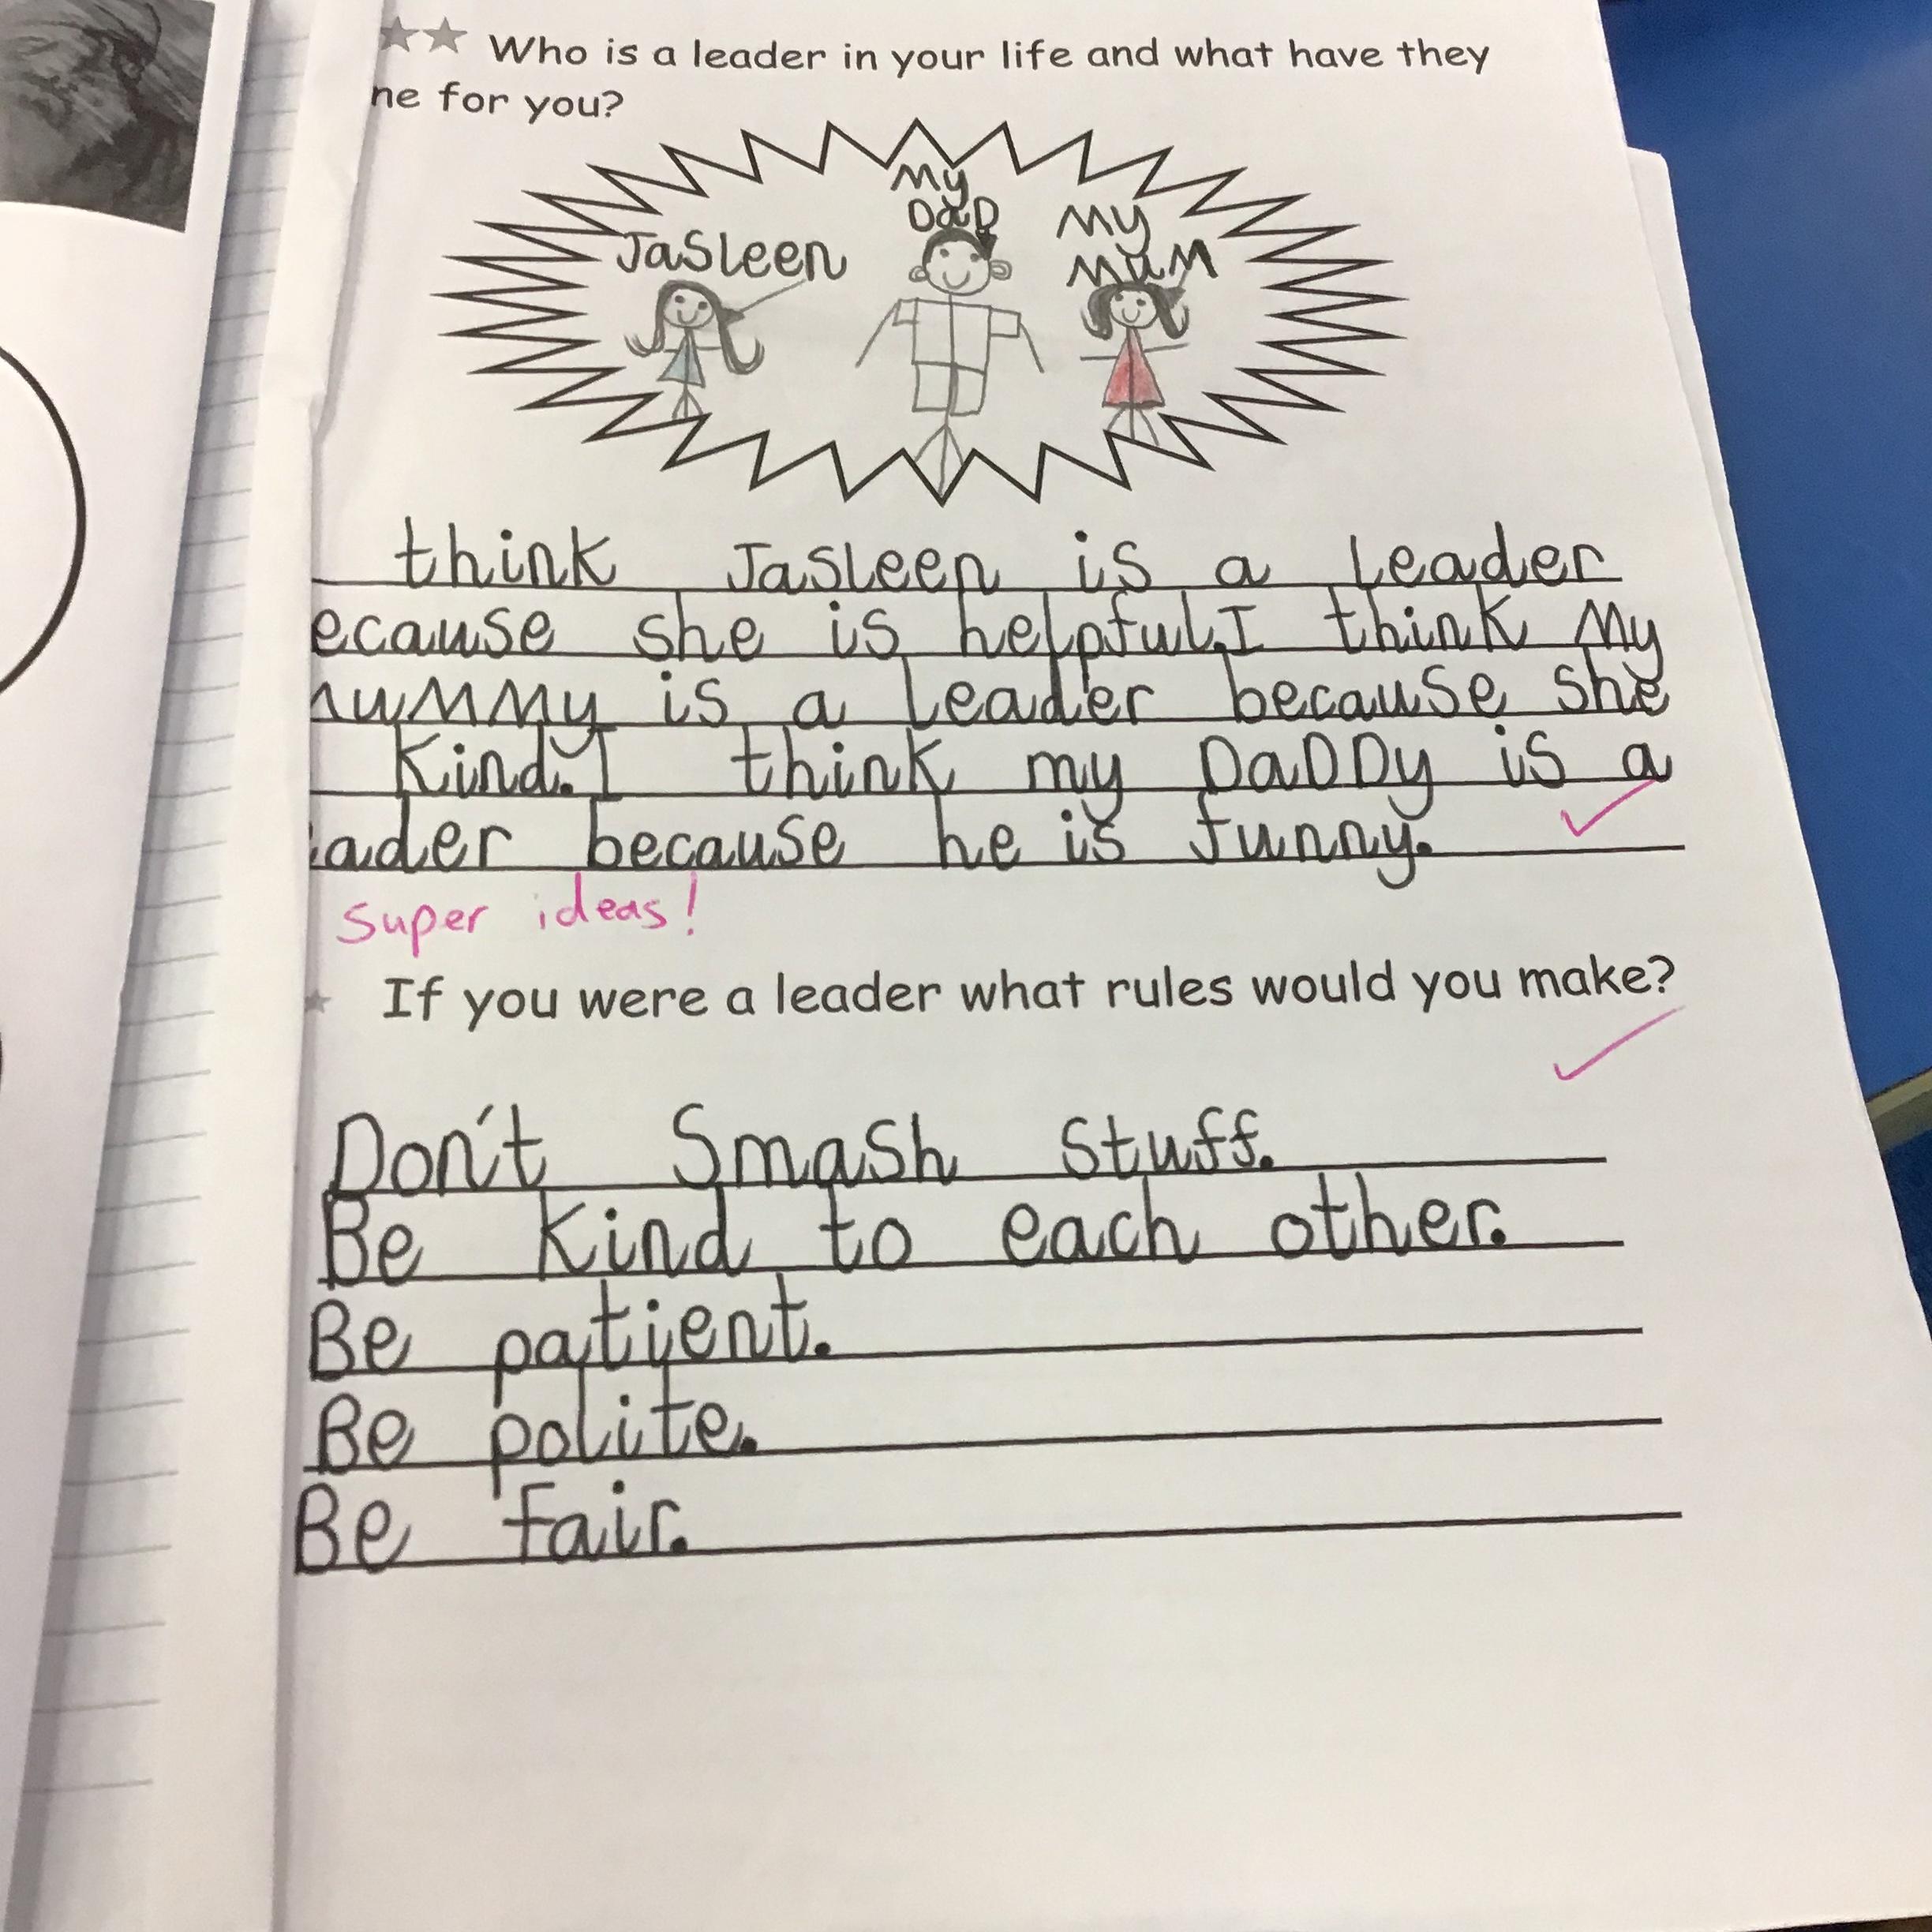 Who is a leader in your life and what have they
ne for you?
My
DaD
My
MuM
JaSleen
think JaSleen is a leader
ecause she is helpful.I think My
uMMy is a leader because she
Kind.I think my DaDDy is a
ader because he is funny.
Super ideas!
If you were a leader what rules would you make?
Don't SmaSh Stuff.
Be Kind to each other.
Be patient.
Be polite.
Be fair.